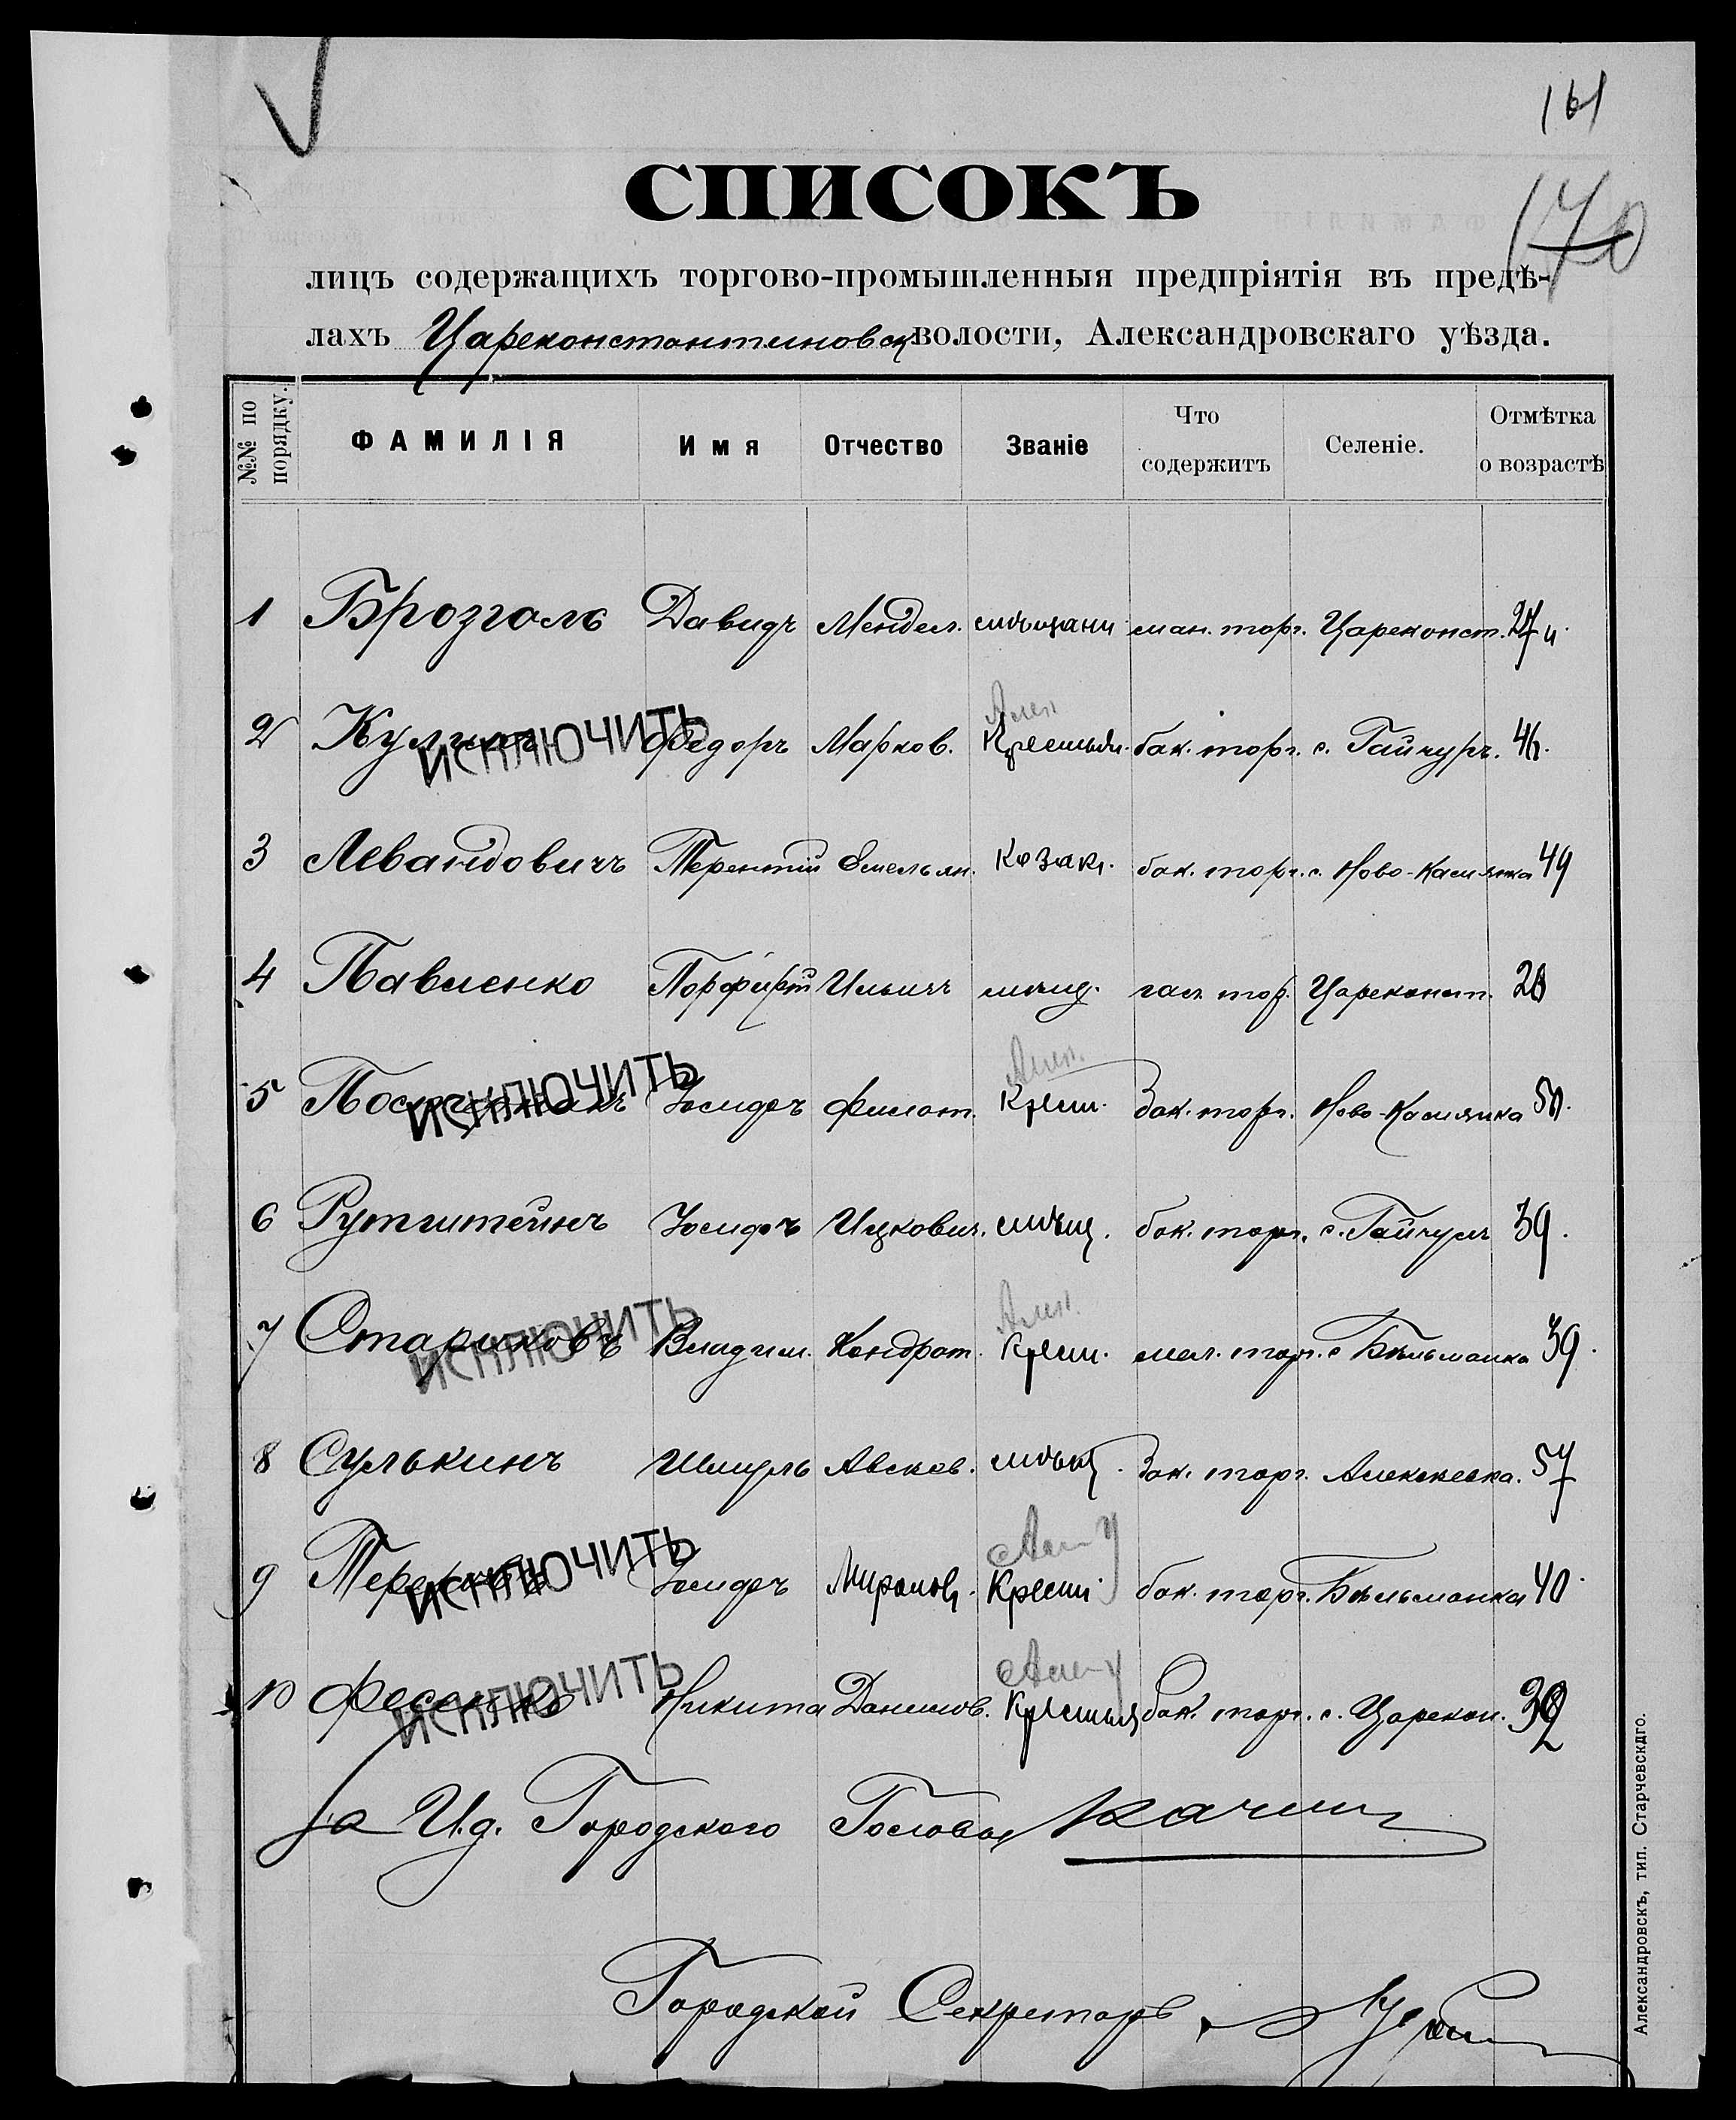 161
170
СПИСОКЪ
лицъ содержащихъ торгово-промышленныя предпріятія въ предѣ-
лахъ Цареконстантиновск. волости, Александровскаго уѣзда.
№№ по порядку. ФАМИЛІЯ Имя Отчество Званіе Что содержитъ Селеніе. Отмѣтка о возрастѣ
1 Брозголь Давидъ Мендел. мѣщани. ман. торг. Цареконст. 27
Алек
2 ИСКЛЮЧИТЬ Федоръ Марков. Крестьян. бак. торг. с. Гайчуръ.
3 Левандовичъ Терентій Емельян. Козакъ. бак. торг. с. Ново-Касиянка 49
4 Павленко Порфирій Ильичъ мѣщ. гал. тор. Цареконст.
Алек.
5 ИСКЛЮЧИТЬ Іосифъ Филат. Крест. бак. торг. Ново-Касиянка
6 Рутштейнъ Іосифъ Ицкович. мѣщ. бак. торг. с. Гайчулъ 39.
Алек.
7 Стариковъ ИСКЛЮЧИТЬ Владим. Кондрат. Крест. мел. торг. с Бѣльманка 39.
8 Сулькинъ Шмуль Авсеев. мѣщ. бак. торг. Алексѣевка. 57
9 ИСКЛЮЧИТЬ Іосифъ Миронов. Крест. бак. торг. Бѣльманка 40
10 Фесенко ИСКЛЮЧИТЬ Никита Данилов. Крестьян бак. торг. с. Царекон.
За И.д. Городского Головы
Городской Секретарь
Александровскъ, тип. Старчевскдго.